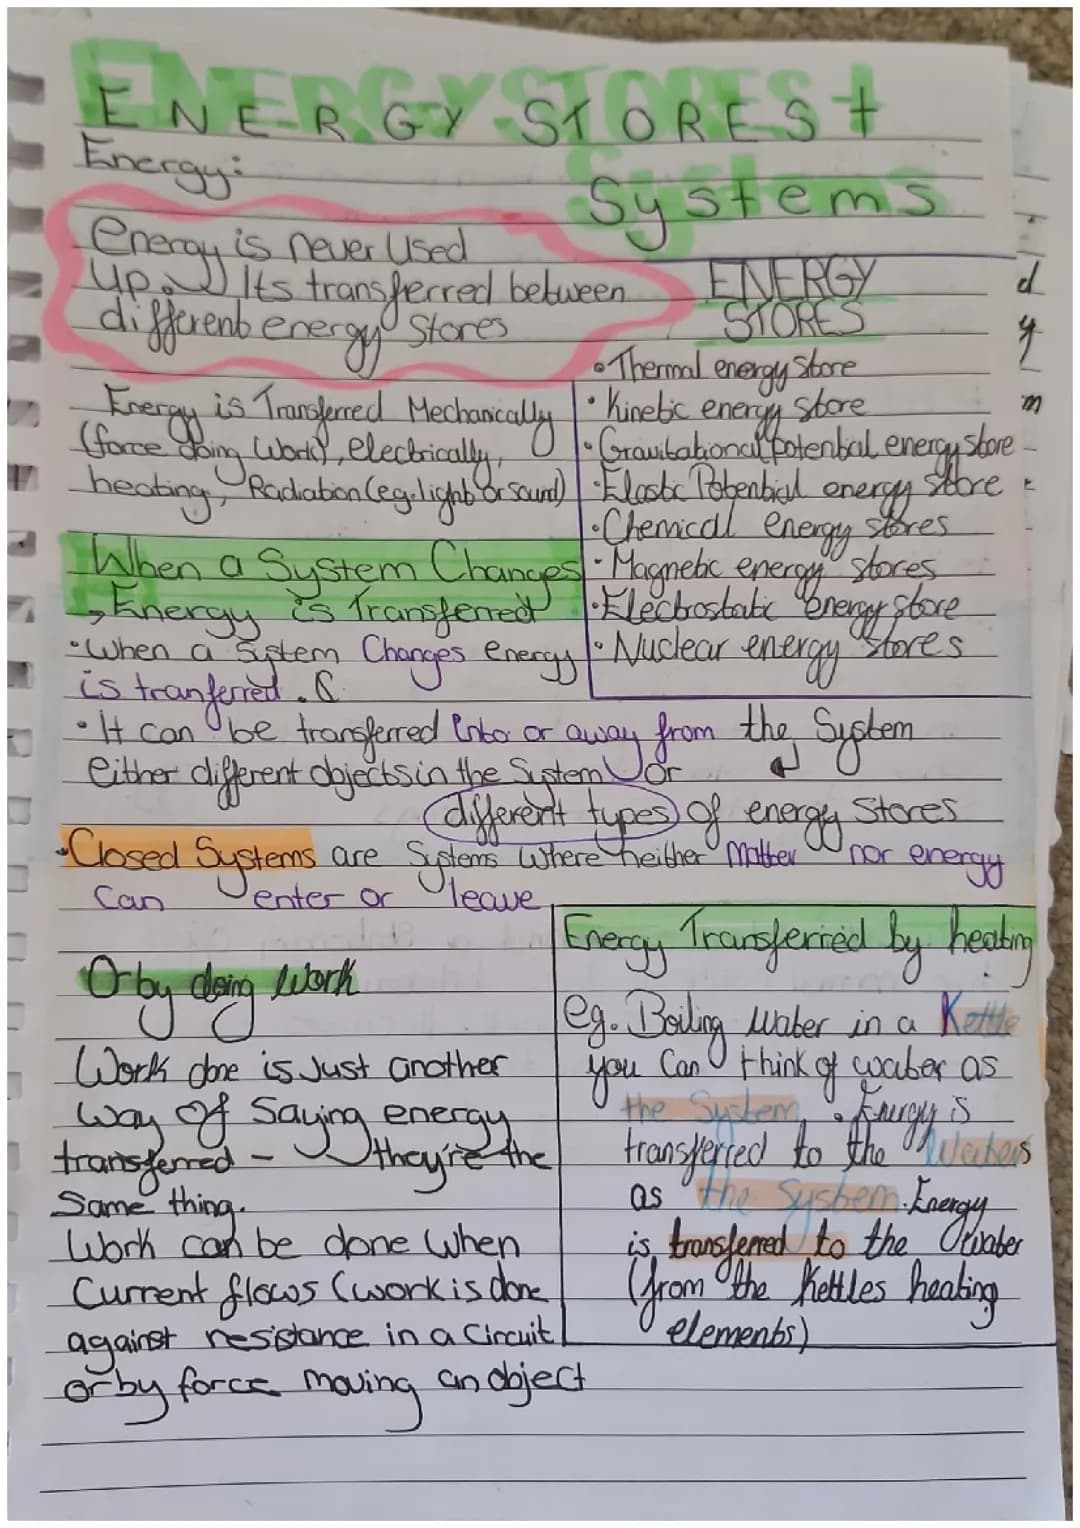 ENERGY STORES +
Systems
Energy:
Energy is never Used
up. Its transferred between
different energy Stores
Energy is Transferred Mechanically
(force doing Work), electrically,
heating, Radiation (eg. light or sound)
ENERGY
STORES
• Thermal energy store
• Kinetic energy store
• Gravitational Potential energy store
• Elastic Potential energy store
• Chemical energy stores
• Magnetic energy stores
• Electrostatic energy store
• Nuclear energy stores
When a System Changes
→ Energy is Transferred
• When a System Changes energy
is tranferred.
• It can be transferred into or away from the System
Either different objects in the System or
different types of energy Stores
• Closed Systems are Systems Where neither Matter nor energy
Can enter or leave
Or by doing Work
Work done is Just another
way of Saying energy
transferred - they're the
Same thing.
Work can be done when
Current flows (work is done
against resistance in a Circuit
or by force moving an object
Energy Transferred by heating
eg. Boiling Water in a Kettle
you Can think of water as
the System. Energy is
transferred to the Waters
as the System. Energy
is transferred to the Water
(from the Kettles heating
elements)
d
y
m